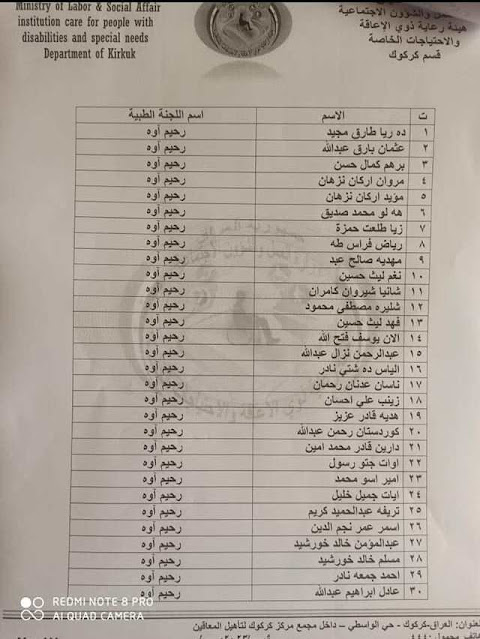 Ministry of Labor & Social Affair
institution care for people with
disabilities and special needs
Department of Kirkuk
والشؤون الاجتماعية
هيئة رعاية ذوي الاعاقة
والاحتياجات الخاصة
قسم كركوك
ت الاسم اسم اللجنة الطبية
١ ده ريا طارق مجيد رحيم أوه
٢ عثمان بارق عبدالله رحيم أوه
٣ برهم كمال حسن رحيم أوه
٤ مروان اركان نزهان رحيم أوه
٥ مؤيد اركان نزهان رحيم أوه
٦ هه لو محمد صديق رحيم أوه
٧ زيا طلعت حمزة رحيم أوه
٨ رياض فراس طه رحيم أوه
٩ مهديه صالح عبد رحيم أوه
١٠ نغم ليث حسين رحيم أوه
١١ شانيا شيروان كامران رحيم أوه
١٢ شليره مصطفى محمود رحيم أوه
١٣ فهد ليث حسين رحيم أوه
١٤ الان يوسف فتح الله رحيم أوه
١٥ عبدالرحمن نزال عبدالله رحيم أوه
١٦ الياس ده شتي نادر رحيم أوه
١٧ ناسان عدنان رحمان رحيم أوه
١٨ زينب علي احسان رحيم أوه
١٩ هديه قادر عزيز رحيم أوه
٢٠ كوردستان رحمن عبدالله رحيم أوه
٢١ دارين قادر محمد امين رحيم أوه
٢٢ اوات جتو رسول رحيم أوه
٢٣ امير اسو محمد رحيم أوه
٢٤ ايات جميل خليل رحيم أوه
٢٥ تريفه عبدالحميد كريم رحيم أوه
٢٦ اسمر عمر نجم الدين رحيم أوه
٢٧ عبدالمؤمن خالد خورشيد رحيم أوه
٢٨ مسلم خالد خورشيد رحيم أوه
٢٩ احمد جمعه نادر رحيم أوه
٣٠ عادل ابراهيم عبدالله رحيم أوه
REDMI NOTE 8 PRO
AI QUAD CAMERA
العنوان: العراق-كركوك - حي الواسطي - داخل مجمع مركز كركوك لتأهيل المعاقين